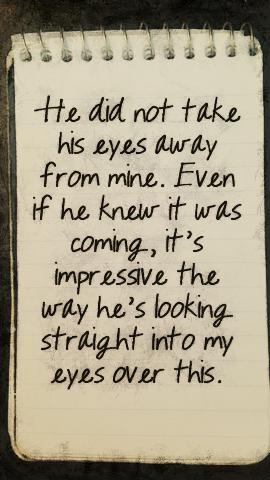 He did not take
his eyes away
from mine. Even
if he knew it was
coming, it's
impressive the
way he's looking
straight into my
eyes over this.